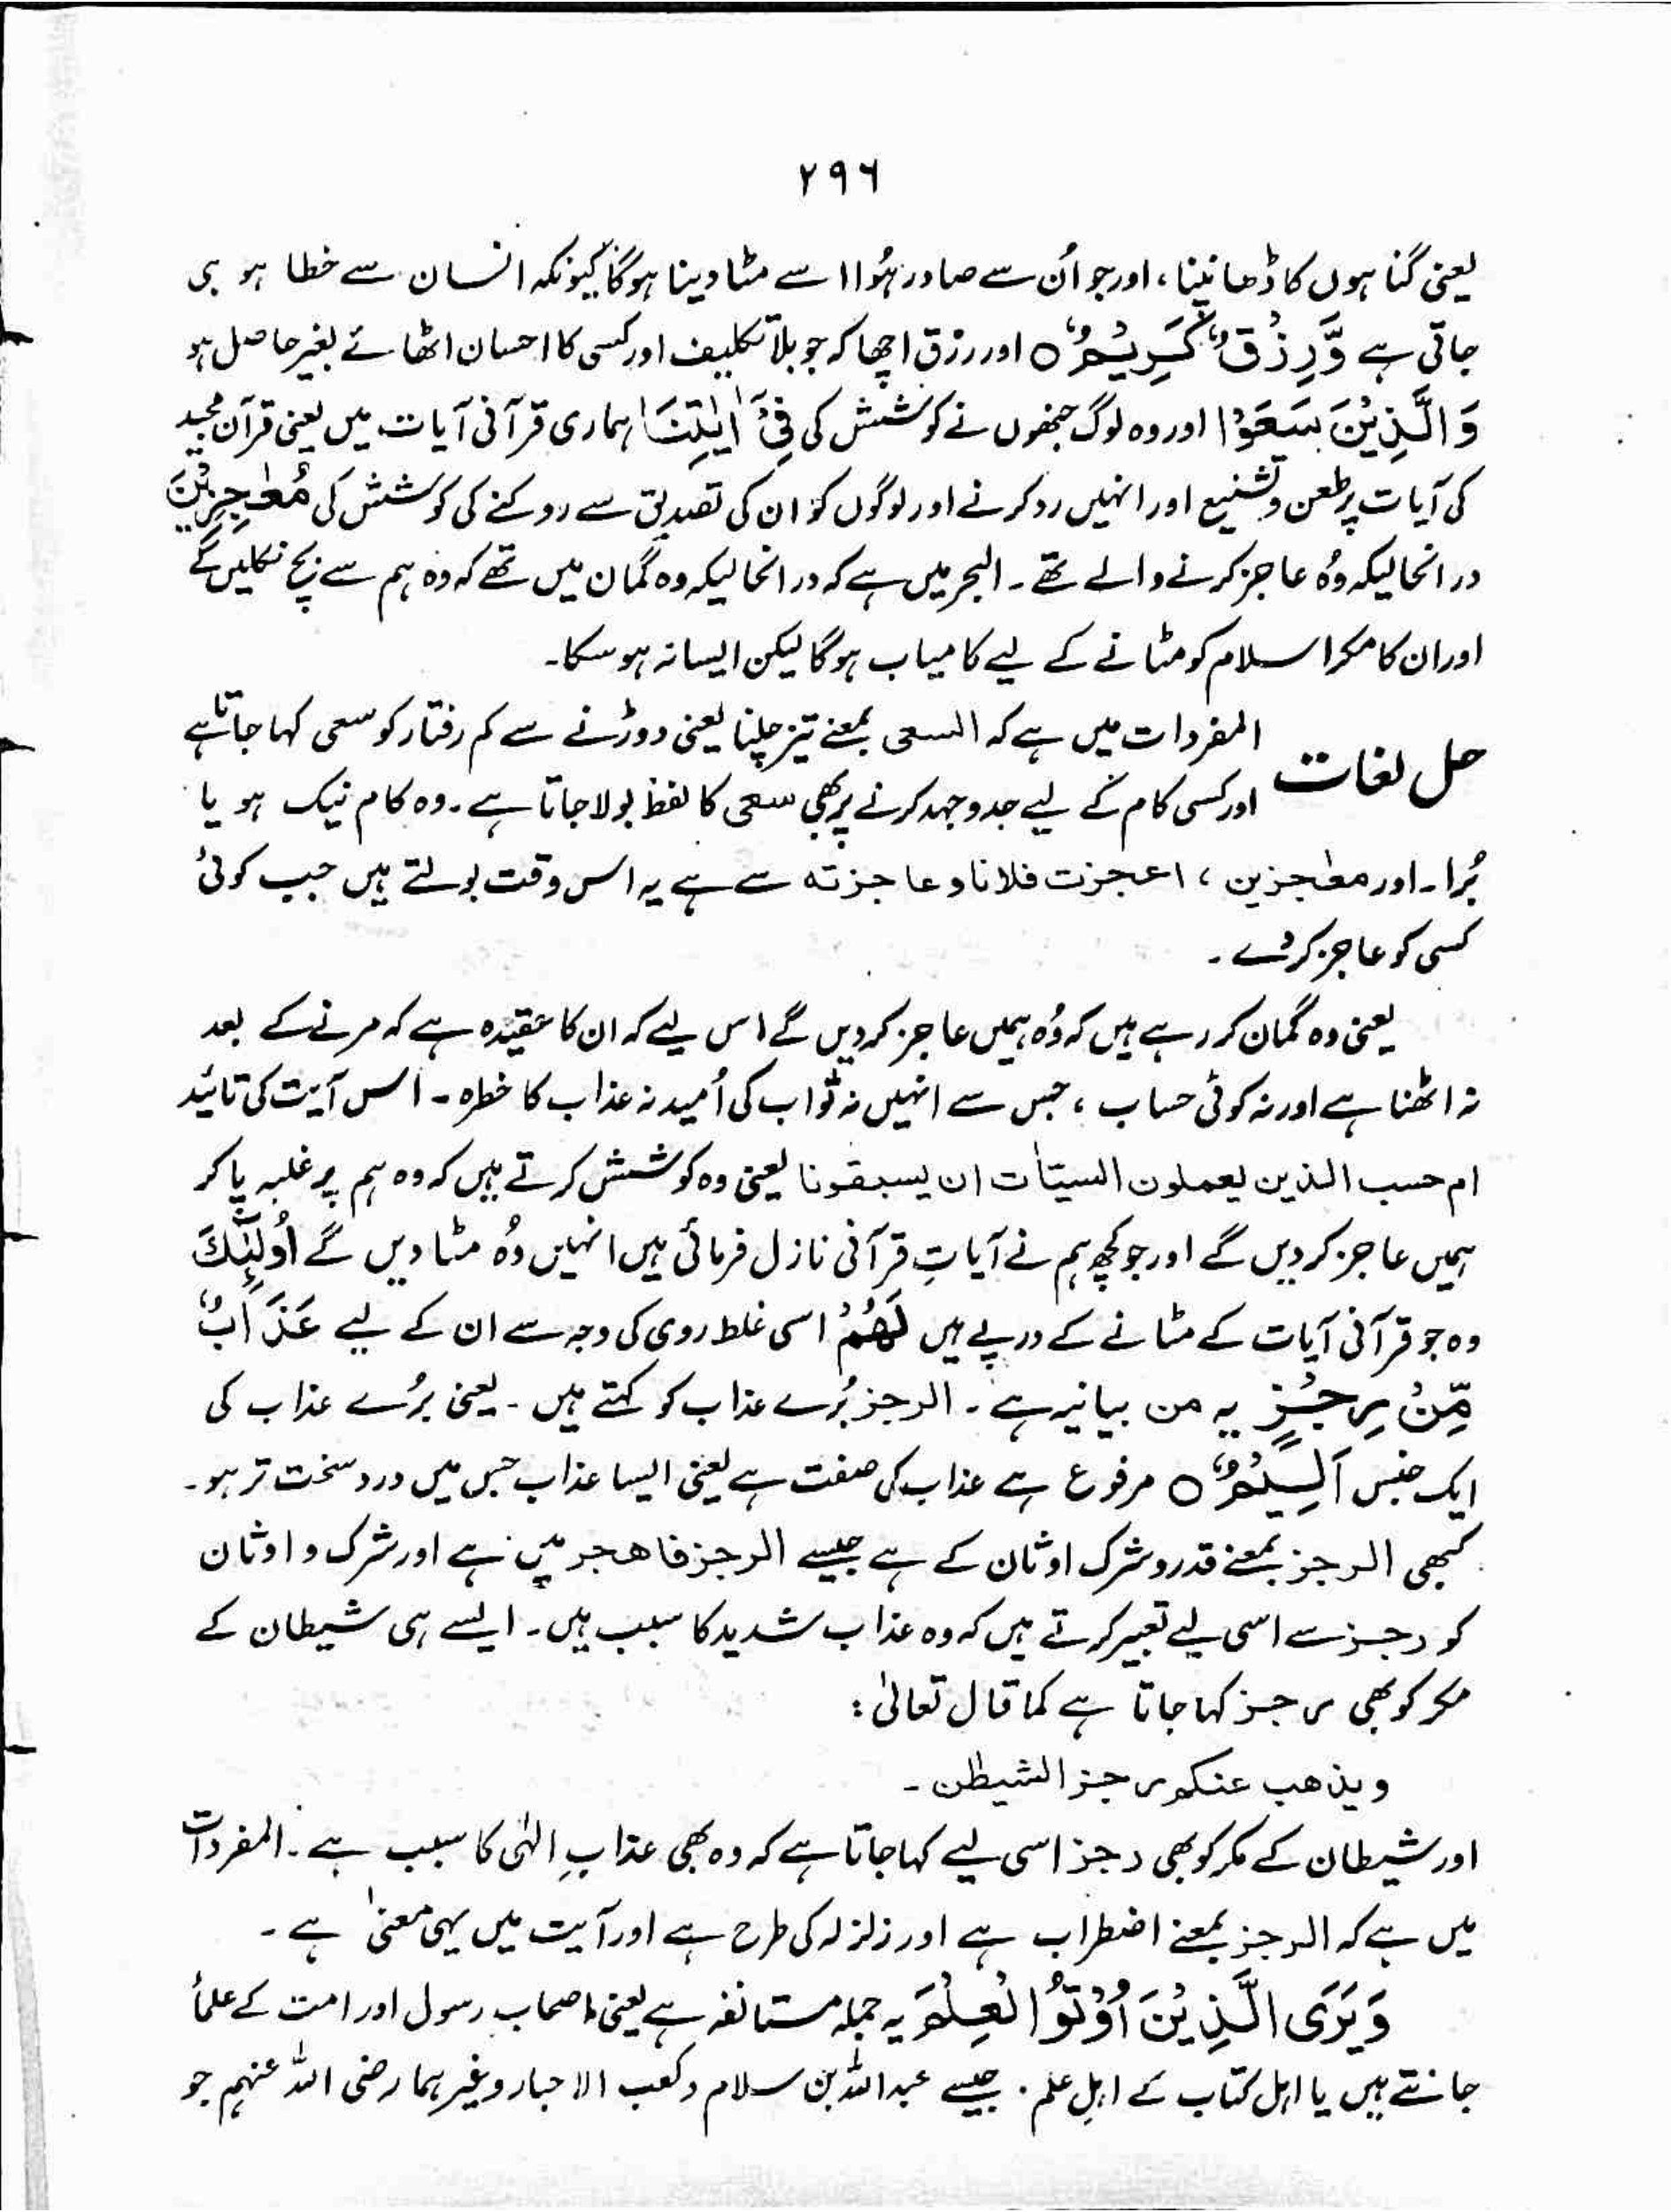 ۲۹۶
یعنی گناہوں کا ڈھانپنا، اور جو اُن سے صادر ہُوا اسے مٹا دینا ہوگا کیونکہ انسان سے خطا ہو ہی
جاتی ہے وَّرِزْقٌ کَرِیْمٌ ۝ اور رزق اچھا کہ جو بلا تکلیف اور کسی کا احسان اٹھائے بغیر حاصل ہو
وَالَّذِیْنَ سَعَوْا اور وہ لوگ جنھوں نے کوشش کی فِیْٓ اٰیٰتِنَا ہماری قرآنی آیات میں یعنی قرآن مجید
کی آیات پر طعن و تشنیع اور انہیں رد کرنے اور لوگوں کو ان کی تصدیق سے روکنے کی کوشش کی مُعٰجِزِیْنَ
درانحالیکہ وُہ عاجز کرنے والے تھے۔ البحر میں ہے کہ درانحالیکہ وہ گمان میں تھے کہ وہ ہم سے بچ نکلیں گے
اور ان کا مکر اسلام کو مٹانے کے لیے کامیاب ہوگا لیکن ایسا نہ ہوسکا۔
حل لغات المفردات میں ہے کہ السعی بمعنے تیز چلنا یعنی دوڑنے سے کم رفتار کو سعی کہا جاتا ہے
اور کسی کام کے لیے جدوجہد کرنے پر بھی سعی کا لفظ بولا جاتا ہے۔ وہ کام نیک ہو یا
بُرا۔ اور معٰجزین، اعجزت فلانا و عاجزتہ سے ہے یہ اس وقت بولتے ہیں جب کوئی
کسی کو عاجز کر دے۔
یعنی وہ گمان کر رہے ہیں کہ وُہ ہمیں عاجز کر دیں گے اس لیے کہ ان کا عقیدہ ہے کہ مرنے کے بعد
نہ اٹھنا ہے اور نہ کوئی حساب، جس سے انہیں نہ ثواب کی اُمید نہ عذاب کا خطرہ۔ اس آیت کی تائید
ام حسب الذین یعملون السیّاٰت ان یسبقونا یعنی وہ کوشش کرتے ہیں کہ وہ ہم پر غلبہ پا کر
ہمیں عاجز کر دیں گے اور جو کچھ ہم نے آیاتِ قرآنی نازل فرمائی ہیں انہیں وُہ مٹا دیں گے اُولٰٓئِكَ
وہ جو قرآنی آیات کے مٹانے کے درپے ہیں لَهُمْ اسی غلط روی کی وجہ سے ان کے لیے عَذَابٌ
مِّنْ رِجْزٍ یہ من بیانیہ ہے۔ الرجز بُرے عذاب کو کہتے ہیں۔ یعنی بُرے عذاب کی
ایک جنس اَلِیْمٌ ۝ مرفوع ہے عذاب کی صفت ہے یعنی ایسا عذاب جس میں درد سخت تر ہو۔
کبھی الرجز بمعنے قدر و شرک اوثان کے ہے جیسے الرجز فاهجر میں ہے اور شرک و اوثان
کو رجز سے اسی لیے تعبیر کرتے ہیں کہ وہ عذاب شدید کا سبب ہیں۔ ایسے ہی شیطان کے
مکر کو بھی رجز کہا جاتا ہے کما قال تعالیٰ:
ویذهب عنکم رجز الشیطٰن۔
اور شیطان کے مکر کو بھی رجز اسی لیے کہا جاتا ہے کہ وہ بھی عذابِ الٰہی کا سبب ہے۔ المفردات
میں ہے کہ الرجز بمعنے اضطراب ہے اور زلزلہ کی طرح ہے اور آیت میں یہی معنیٰ ہے۔
وَیَرَی الَّذِیْنَ اُوْتُوا الْعِلْمَ یہ جملہ مستانفہ ہے یعنی اصحاب رسول اور امت کے علماٴ
جانتے ہیں یا اہل کتاب کے اہلِ علم۔ جیسے عبداللہ بن سلام و کعب الاحبار وغیرہما رضی اللہ عنہم جو